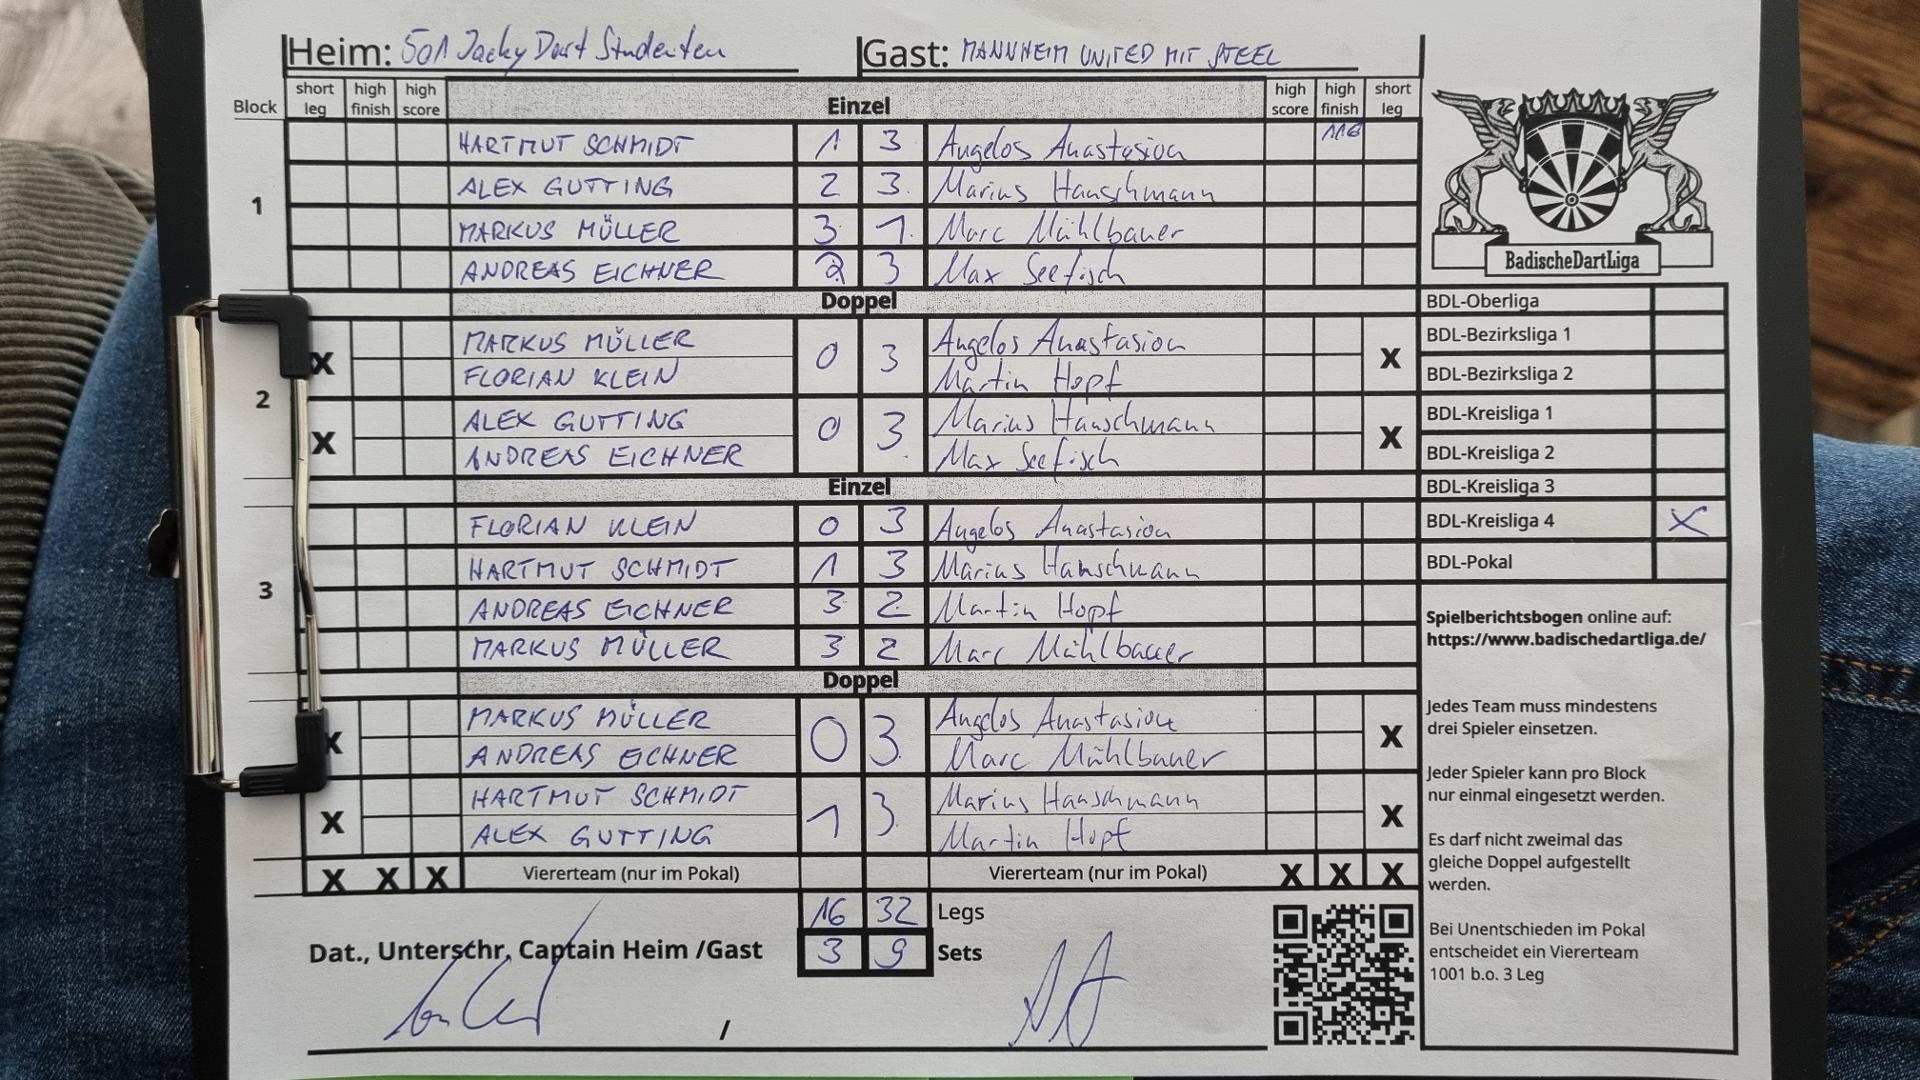 Heim: 501 Jacky Dart Studenten Gast: MANNHEIM UNITED MIT STEEL
Block short leg high finish high score Einzel high score high finish short leg
1
HARTMUT SCHMIDT 1 3 Angelos Anastasiou 116
ALEX GUTTING 2 3 Marius Hanschmann
MARKUS MÜLLER 3 1 Marc Mühlbauer
ANDREAS EICHNER 2 3 Max Seefisch
Doppel
2
MARKUS MÜLLER 0 3 Angelos Anastasiou
X X
FLORIAN KLEIN Martin Hopf
ALEX GUTTING 0 3 Marius Hanschmann
X X
ANDREAS EICHNER Max Seefisch
Einzel
3
FLORIAN KLEIN 0 3 Angelos Anastasiou
HARTMUT SCHMIDT 1 3 Marius Hanschmann
ANDREAS EICHNER 3 2 Martin Hopf
MARKUS MÜLLER 3 2 Marc Mühlbauer
Doppel
MARKUS MÜLLER 0 3 Angelos Anastasiou
X X
ANDREAS EICHNER Marc Mühlbauer
HARTMUT SCHMIDT 1 3 Marius Hanschmann
X X
ALEX GUTTING Martin Hopf
X X X Viererteam (nur im Pokal) Viererteam (nur im Pokal) X X X
16 32 Legs
Dat., Unterschr. Captain Heim /Gast 3 9 Sets
/
BadischeDartLiga
BDL-Oberliga
BDL-Bezirksliga 1
BDL-Bezirksliga 2
BDL-Kreisliga 1
BDL-Kreisliga 2
BDL-Kreisliga 3
BDL-Kreisliga 4 X
BDL-Pokal
Spielberichtsbogen online auf:
https://www.badischedartliga.de/
Jedes Team muss mindestens
drei Spieler einsetzen.
Jeder Spieler kann pro Block
nur einmal eingesetzt werden.
Es darf nicht zweimal das
gleiche Doppel aufgestellt
werden.
Bei Unentschieden im Pokal
entscheidet ein Viererteam
1001 b.o. 3 Leg